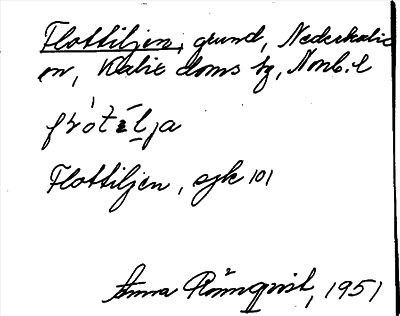 Flottiljen, grund, Nederkalix
sn, Kalix doms hg, Nonb. l
flòtílja
Flottiljen, sjk 101
Anna Rönnqvist, 1951